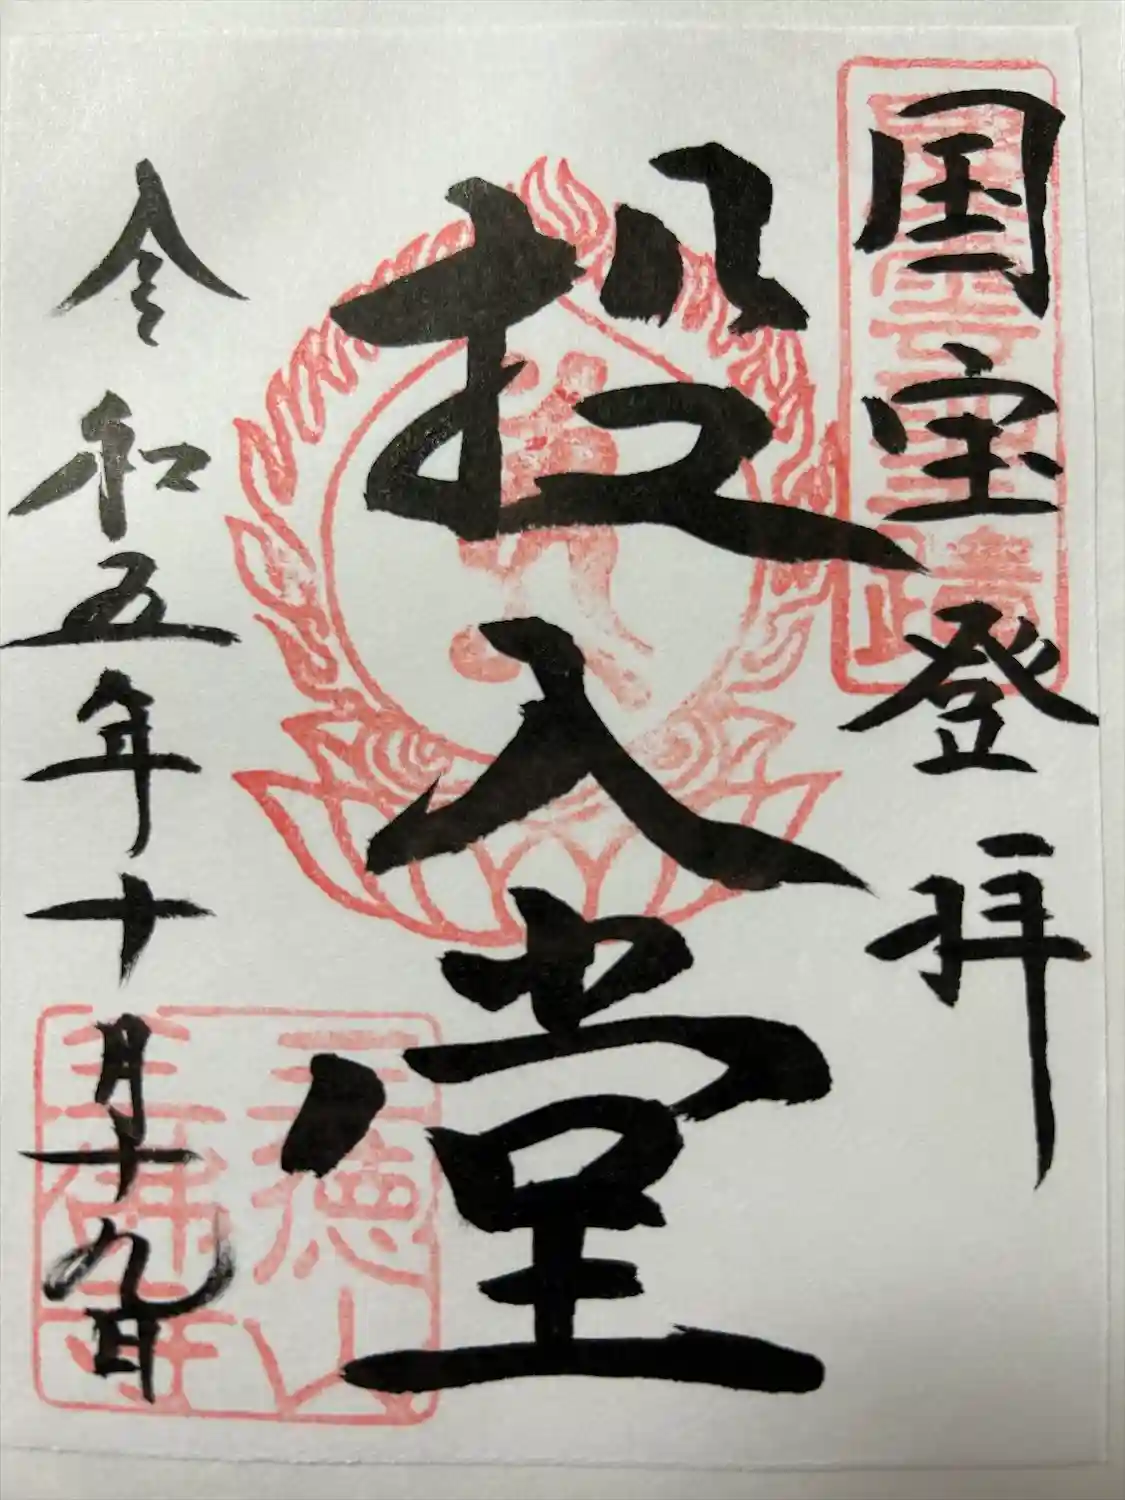 国宝登拝
投入堂
令和五年十月十九日
三徳山
三佛寺